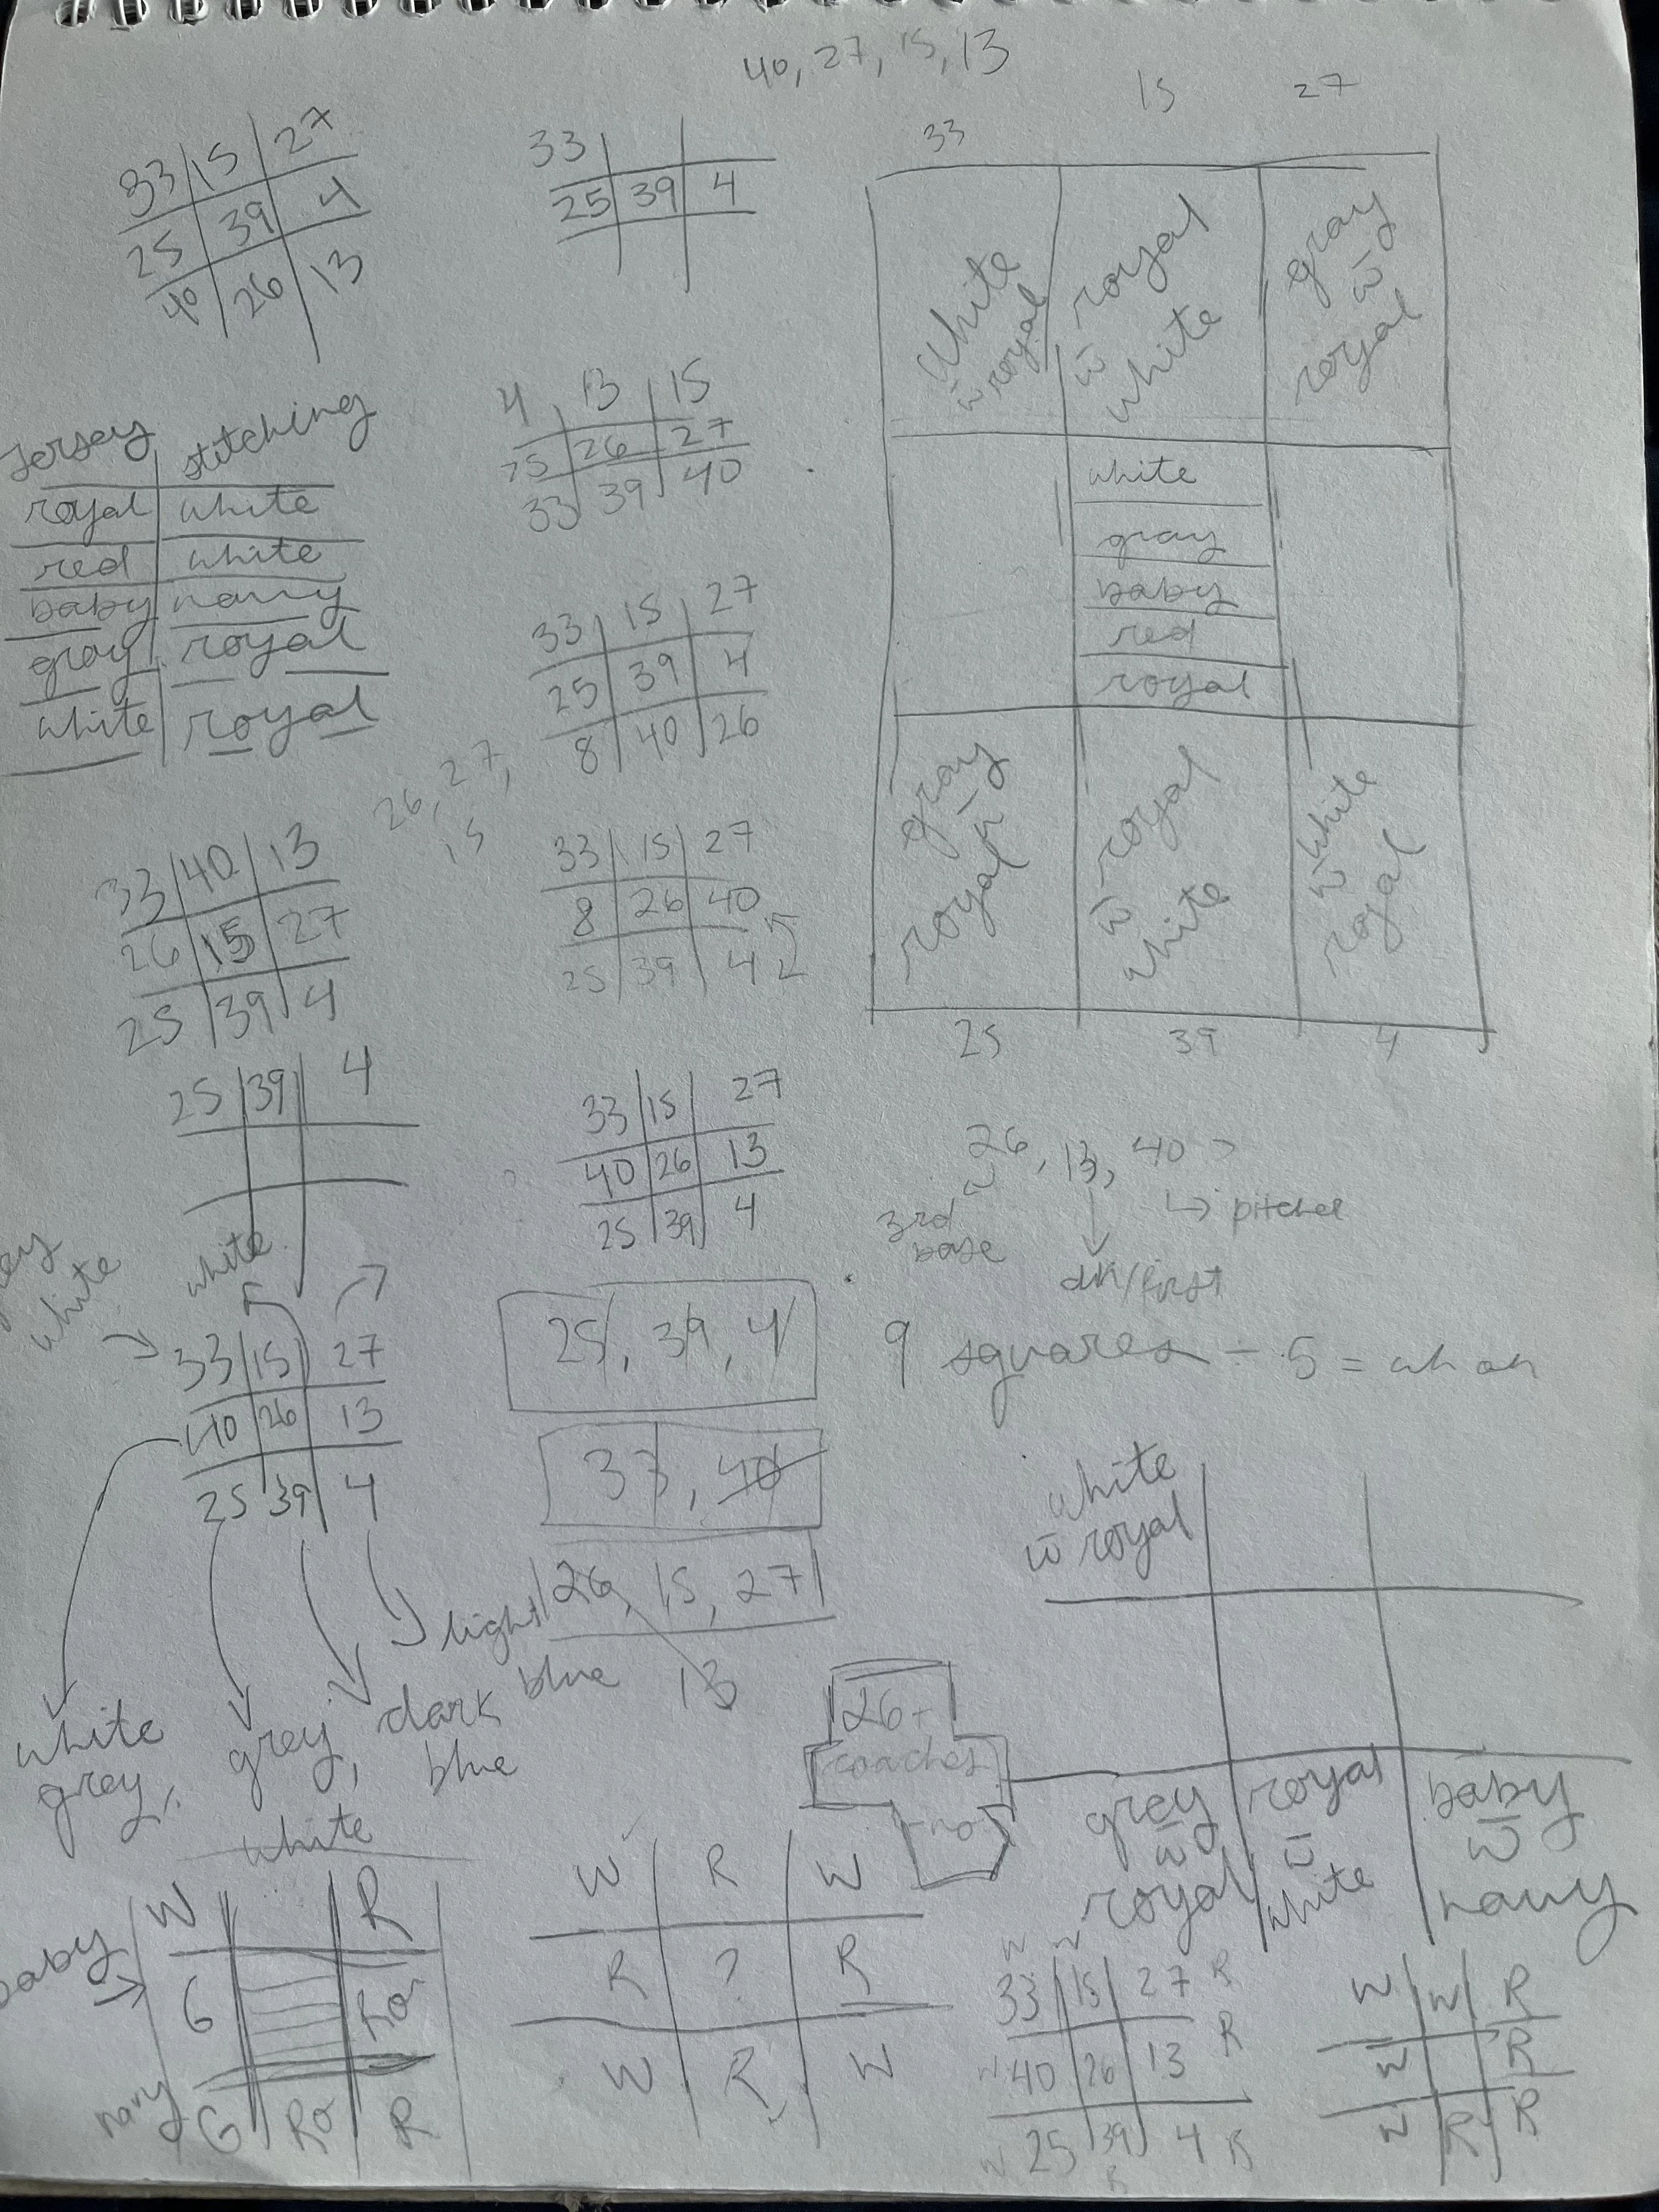 40, 27, 15, 13
33 15 27
25 39 4
40 26 13
33
25 39 4
Jersey stitching
royal white
red white
baby navy
gray royal
white royal
4 13 15
25 26 27
33 39 40
33 15 27
25 39 4
8 40 26
26, 27,
15
33 15 27
8 26 40
25 39 4
33 40 13
26 15 27
25 39 4
25 39 4
33 15 27
40 26 13
25 39 4
33 15 27
white
w̄ royal
royal
w̄
white
gray
w̄
royal
white
gray
baby
red
royal
gray
w̄
royal
royal
w̄
white
white
w̄
royal
25 39 4
26, 13, 40
3rd
base
pitcher
dh/first
white
white
33 15 27
40 26 13
25 39 4
white
grey,
grey,
white
dark
blue
light
blue
25, 39, 4
33, 40
26, 15, 27
13
9 squares - 5 =
26+
coaches
no
white
w̄ royal
grey
w̄
royal
royal
w̄
white
baby
w̄
navy
baby
navy
W R
G Ro
G Ro R
W R W
R ? R
W R W
W W
33 15 27 R
W 40 26 13 R
W 25 39 4 R
R
W W R
W R
W R R